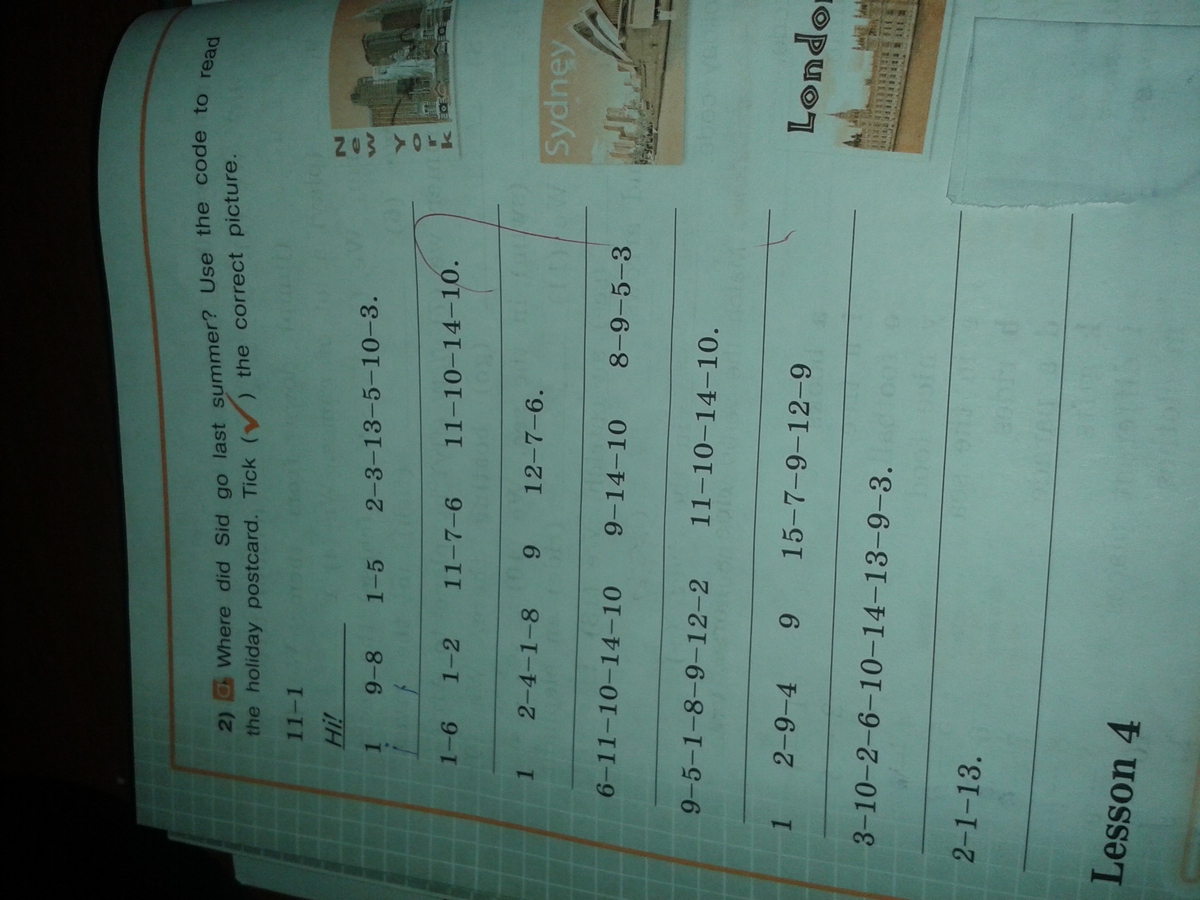 2) Where did Sid go last summer? Use the code to read
the holiday postcard. Tick (✓) the correct picture.
11–1
Hi!
1 9–8 1–5 2–3–13–5–10–3.
1–6 1–2 11–7–6 11–10–14–10.
1 2–4–1–8 9 12–7–6.
6–11–10–14–10 9–14–10 8–9–5–3
9–5–1–8–9–12–2 11–10–14–10.
1 2–9–4 9 15–7–9–12–9
3–10–2–6–10–14–13–9–3.
2–1–13.
New York
Sydney
Londo
Lesson 4